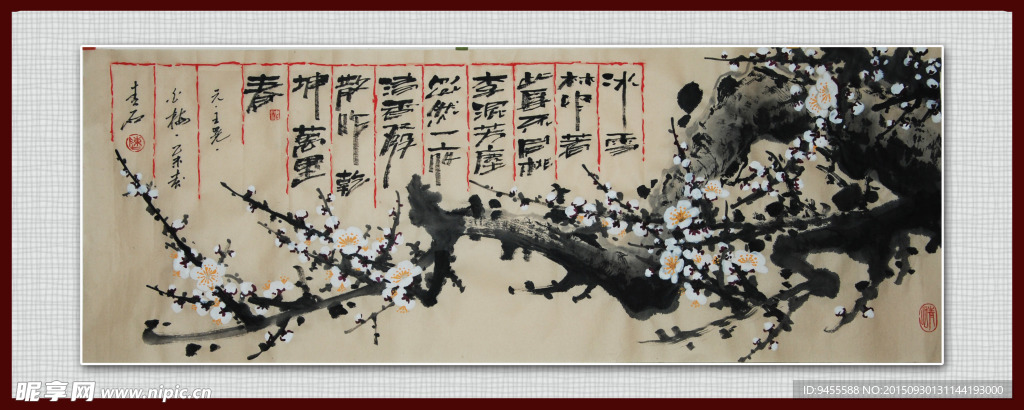 冰雪
林中著
此身不同桃
李混芳塵
忽然一夜
清香發
散作乾
坤萬里
春
元·王冕·
白梅·
青石
昵享网 www.nipic.cn
ID:9455588 NO:20150930131144193000